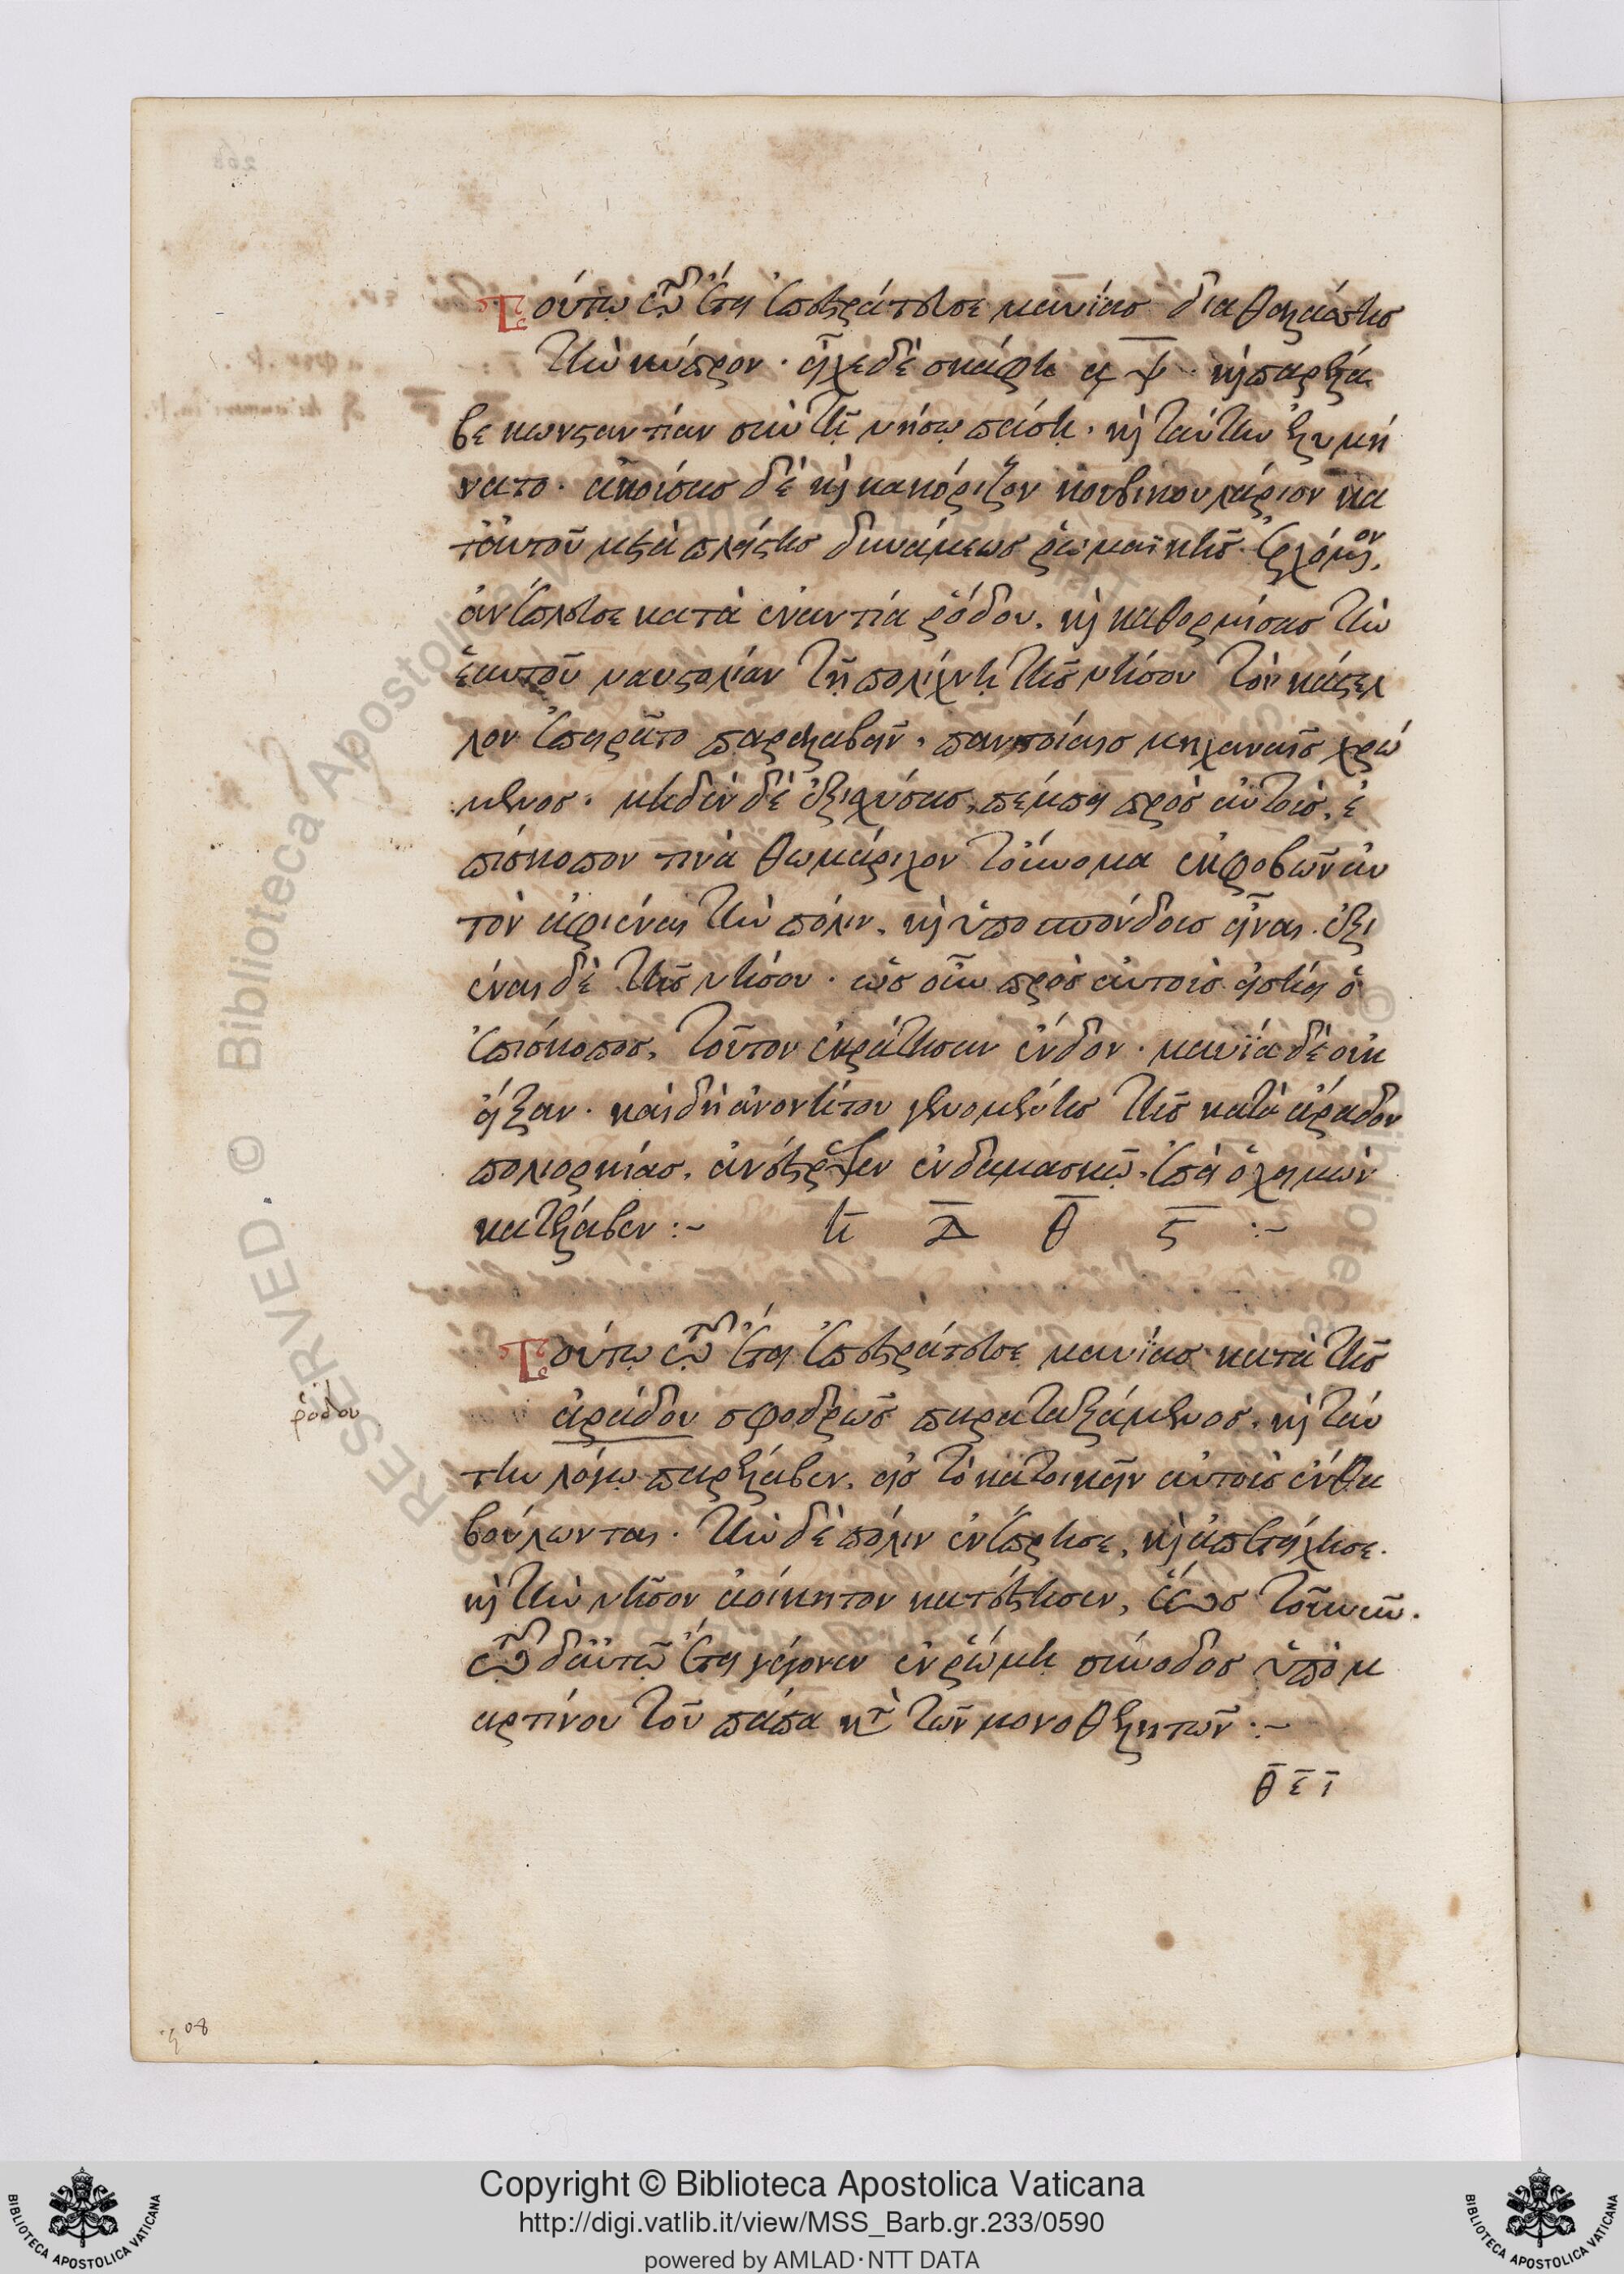 Τούτῳ τῷ ἔτει ἐπεστράτευσε μαυΐας διαθαλάσσης
τὴν κύπρον · εἶχε δὲ σκάφη ͵αψ · καὶ παρέλα
βε κωνσταντίαν σὺν τῇ νήσῳ πάσῃ · καὶ ταύτην ἐλυμή
νατο · ἀκούσας δὲ καὶ κακόριζον κουβικουλάριον κα
τ' αὐτοῦ μετὰ πλείστης δυνάμεως ῥωμαϊκῆς ἐρχόμενον,
ἀνέπλευσε κατὰ ἐναντία ῥόδου, καὶ καθορμίσας τὴν
ἑαυτοῦ ναυστολίαν τῇ πολίχνῃ τῆς νήσου τὸν κάστελ
λον ἐπειρᾶτο παραλαβεῖν, παντοίαις μηχαναῖς χρώ
μενος · μηδὲν δὲ ἐξισχύσας, πέμπει πρὸς αὐτοὺς, ἐ
πίσκοπον τινὰ θωμάριχον τοὔνομα ἐκφοβῶν αὐ
τὸν ἀφιέναι τὴν πόλιν, καὶ ὑποσπόνδους εἶναι. ἐξι
έναι δὲ τῆς νήσου · ὡς οὖν πρὸς αὐτοὺς εἰσῄει ὁ
ἐπίσκοπος, τοῦτον ἐκράτησαν ἔνδον · μαυΐα δὲ οὐκ
εἶξαν · καὶ δὴ ἀνονήτου γενομένης τῆς κατὰ ἀράδον
πολιορκίας, ἀνέστρεψεν ἐν δαμασκῷ, ἐπεὶ ὁ χειμὼν
κατέλαβεν :~ η δ θ ϛ :~
Τούτῳ τῷ ἔτει ἐπεστράτευσε μαυΐας κατὰ τῆς
ῥόδου
ἀράδου σφοδρῶς παραταξάμενος, καὶ ταύ
την λόγῳ παρέλαβεν, εἰς τὸ κατοικεῖν αὐτοὺς ἔνθα
βούλωνται · τὴν δὲ πόλιν ἐνέπρησε, καὶ ἀπετείχησε.
καὶ τὴν νῆσον ἀοίκητον κατέστησεν, ἕως τοῦ νῦν.
τῷ δ' αὐτῷ ἔτει γέγονεν ἐν ῥώμῃ σύνοδος ὑπὸ μ
αρτίνου τοῦ πάπα κατὰ τῶν μονοθελητῶν :~
θ ε ι